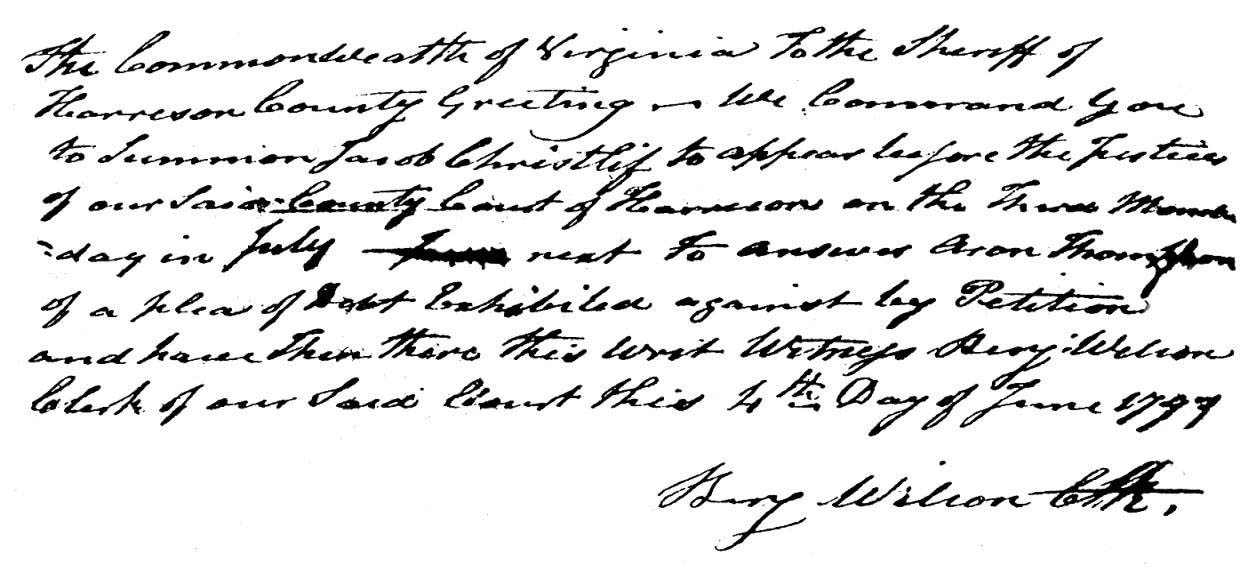 The Commonwealth of Virginia To the Sheriff of
Harreson County Greeting — We Command You
to Summon Jacob Christlif to appear before the Justices
of our Said County Court of Harrison on the Third Mon
=day in July next To answer Aron Thompson
of a plea of Debt Exhibited against by Petition
and have Then there this Writ Witness Benj: Wilson
Clerk of our Said Court this 4th Day of June 1797
Benj Wilson Clk.